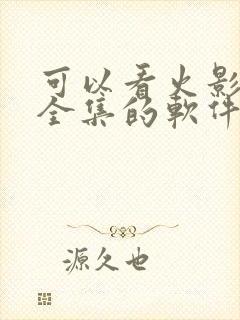 可以看火影
全集的軟件
源久也